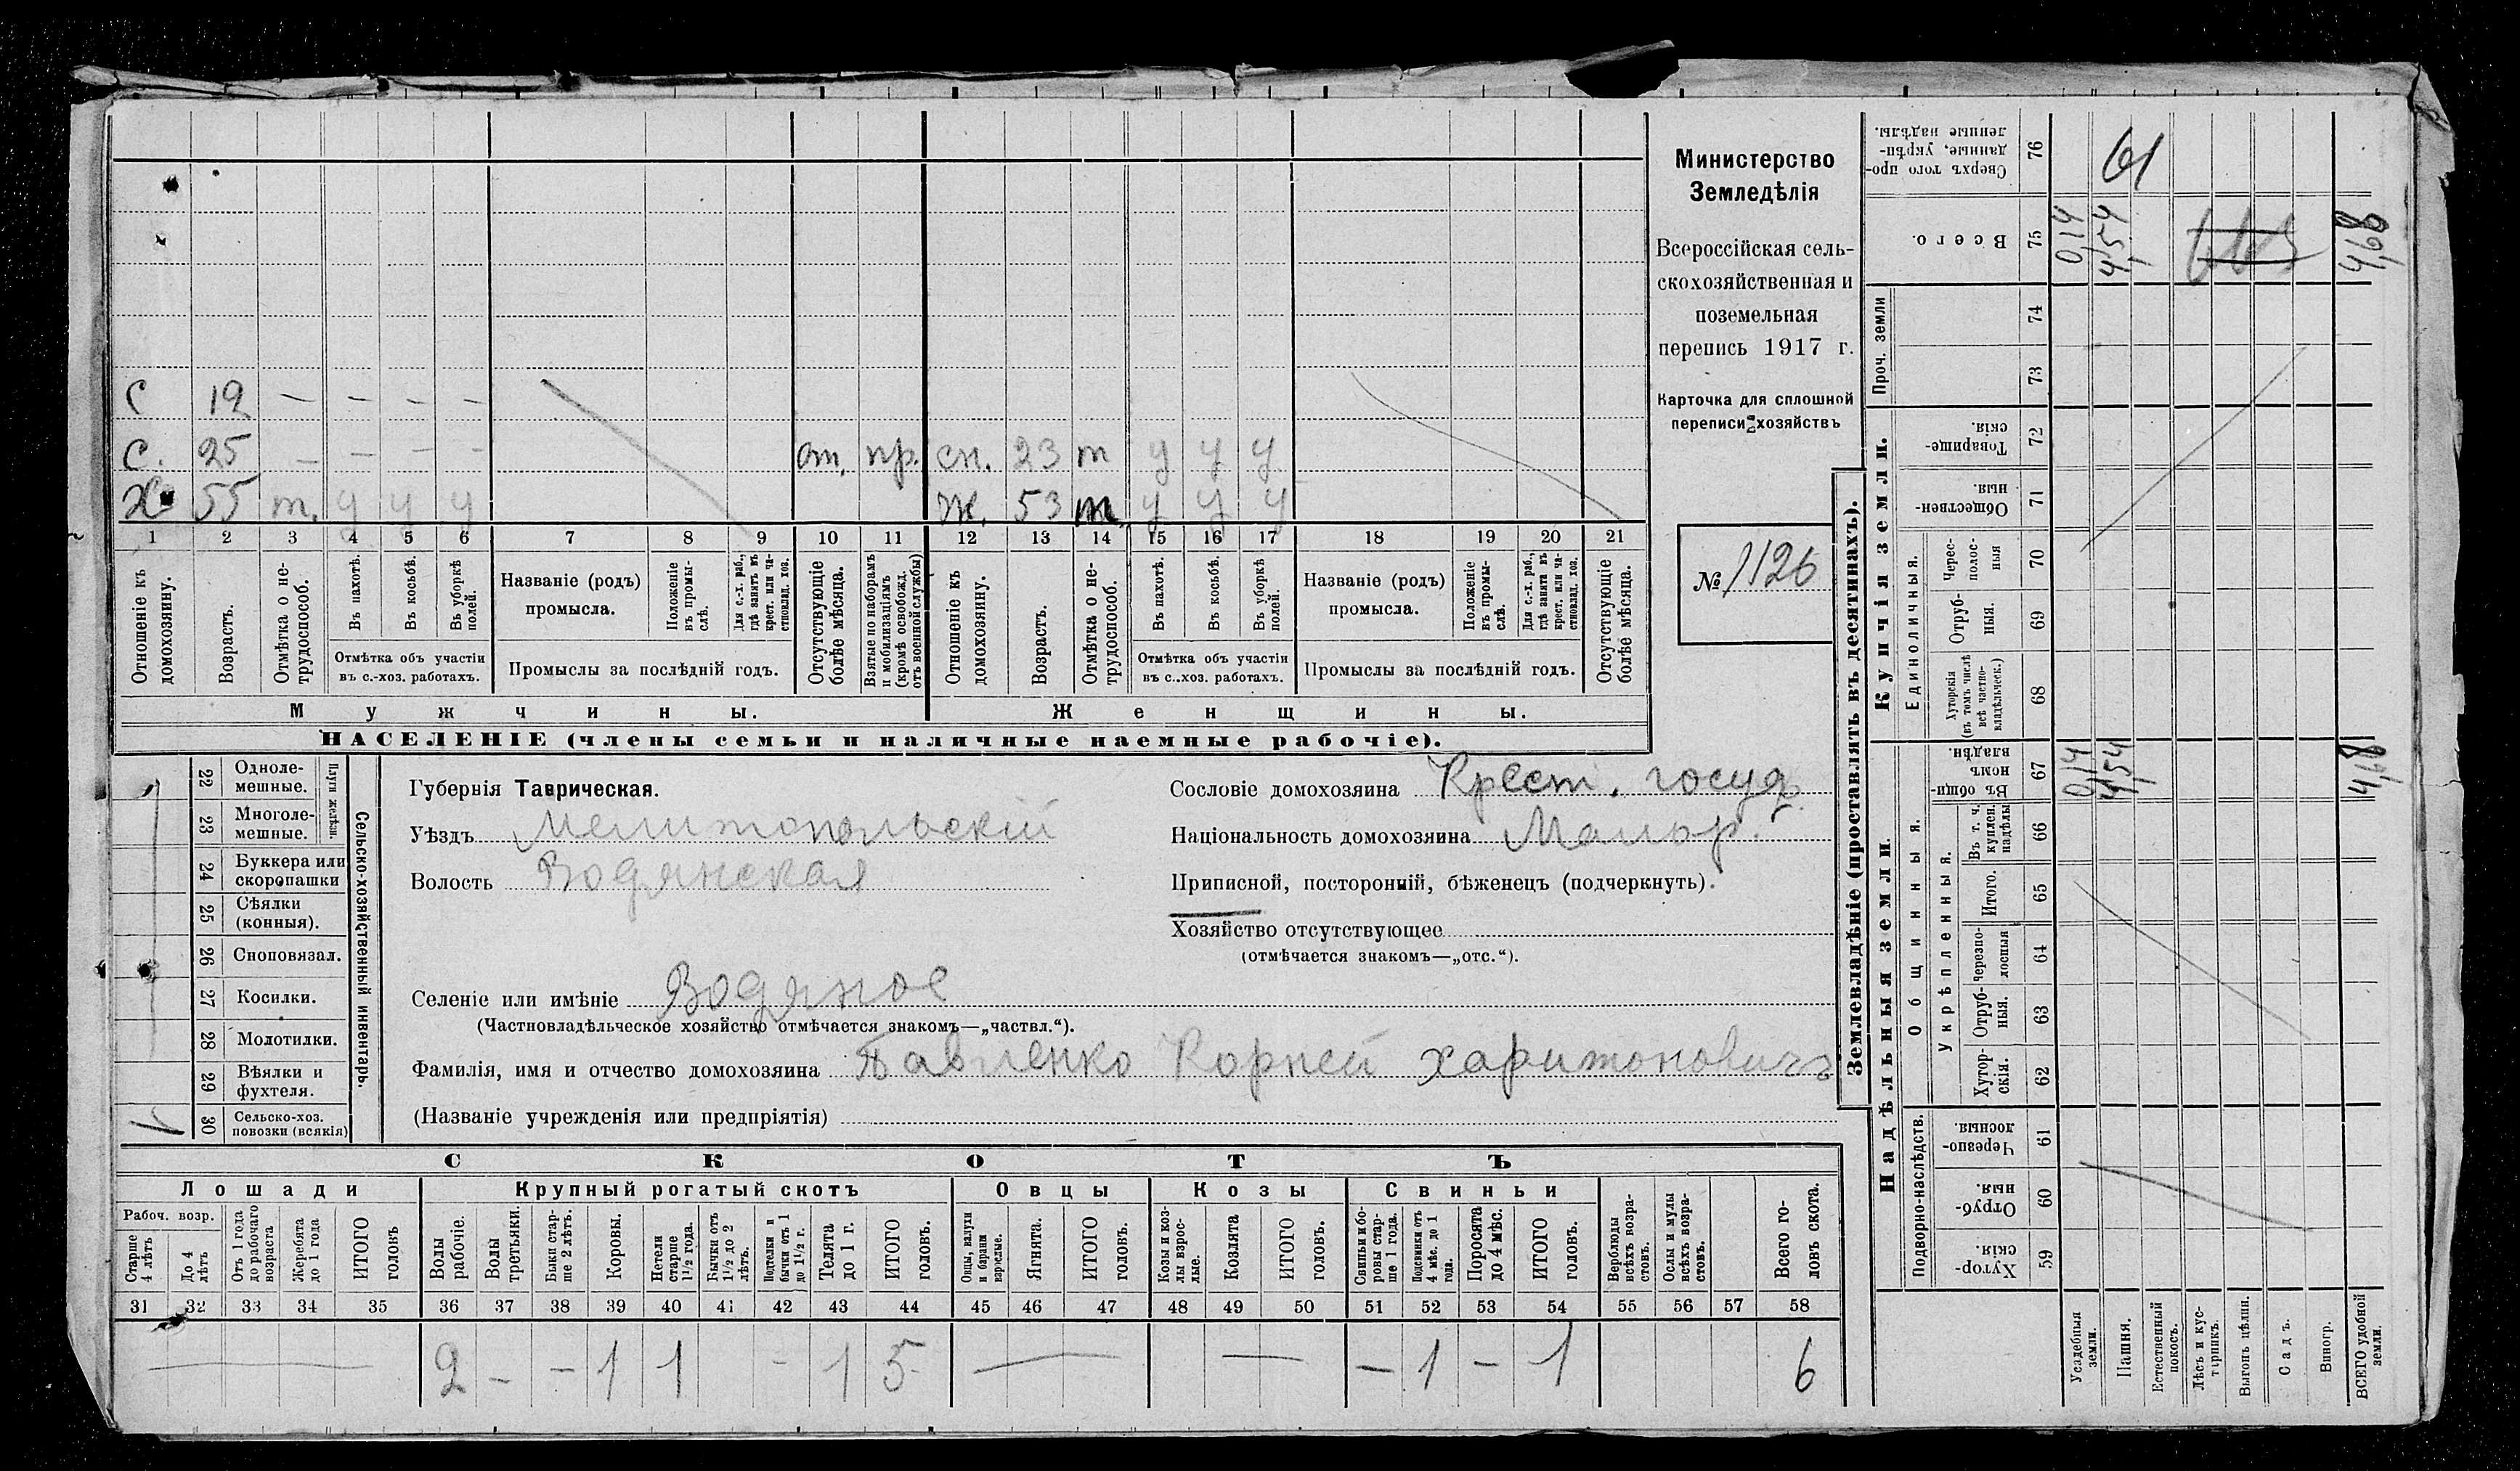 Министерство
Земледѣлія
Всероссійская сель-
скохозяйственная и
поземельная
перепись 1917 г.
Карточка для сплошной
переписи хозяйствъ
№ 1126
С 19 — — — —
С. 25 — — — — от. пр. сн. 23 т у у у
Х 55 т. у у у ж. 53 т. у у у
1 2 3 4 5 6 7 8 9 10 11 12 13 14 15 16 17 18 19 20 21
Отношеніе къ домохозяину.
Возрастъ.
Отмѣтка о не-трудоспособ.
Въ пахотѣ.
Въ косьбѣ.
Въ уборкѣ полей.
Отмѣтка объ участіи въ с.-хоз. работахъ.
Названіе (родъ) промысла.
Положеніе въ промы-слѣ.
Для с.-х. раб., гдѣ занятъ въ крест. или ча-стновлад. хоз.
Промыслы за послѣдній годъ.
Отсутствующіе болѣе мѣсяца.
Взятые по наборамъ и мобилизаціямъ (кромѣ освобожд. отъ военной службы)
Отношеніе къ домохозяину.
Возрастъ.
Отмѣтка о не-трудоспособ.
Въ пахотѣ.
Въ косьбѣ.
Въ уборкѣ полей.
Отмѣтка объ участіи въ с.-хоз. работахъ.
Названіе (родъ) промысла.
Положеніе въ промы-слѣ.
Для с.-х. раб., гдѣ занята въ крест. или ча-стновлад. хоз.
Промыслы за послѣдній годъ.
Отсутствующіе болѣе мѣсяца.
Мужчины. Женщины.
НАСЕЛЕНІЕ (члены семьи и наличные наемные рабочіе).
22 Одноле-мешные.
23 Многоле-мешные.
Плуги желѣзн.
24 Буккера или скоропашки
25 Сѣялки (конныя).
26 Сноповязал.
27 Косилки.
28 Молотилки.
29 Вѣялки и фухтеля.
30 Сельско-хоз. повозки (всякія)
Сельско-хозяйственный инвентарь.
Губернія Таврическая.
Уѣздъ Мелитопольскій
Волость Водянская
Селеніе или имѣніе Водяное
(Частновладѣльческое хозяйство отмѣчается знакомъ—„частвл.“).
Фамилія, имя и отчество домохозяина Павленко Корней Харитоновичъ
(Названіе учрежденія или предпріятія)
Сословіе домохозяина Крест. госуд.
Національность домохозяина Малор.
Приписной, посторонній, бѣженецъ (подчеркнуть).
Хозяйство отсутствующее
(отмѣчается знакомъ—„отс.“).
СКОТЪ
Лошади Крупный рогатый скотъ Овцы Козы Свиньи
Рабоч. возр.
Старше 4 лѣтъ
До 4 лѣтъ
Отъ 1 года до рабочаго возраста
Жеребята до 1 года
ИТОГО головъ
Волы рабочіе.
Волы третьяки.
Быки стар-ше 2 лѣтъ.
Коровы.
Нетели старше 1½ года.
Бычки отъ 1½ до 2 лѣтъ.
Подтелки и бычки отъ 1 до 1½ г.
Телята до 1 г.
ИТОГО головъ.
Овцы, валухи и бараны взрослые.
Ягнята.
ИТОГО головъ.
Козы и коз-лы взрос-лые.
Козлята
ИТОГО головъ.
Свиньи и бо-ровы стар-ше 1 года.
Подсвинки отъ 4 мѣс. до 1 года.
Поросята до 4 мѣс.
ИТОГО головъ.
Верблюды всѣхъ возра-стовъ.
Ослы и мулы всѣхъ возра-стовъ.
Всего го-ловъ скота.
31 32 33 34 35 36 37 38 39 40 41 42 43 44 45 46 47 48 49 50 51 52 53 54 55 56 57 58
— 2 - - 1 1 - 1 5 — — - 1 - 1 6
Землевладѣніе (проставлять въ десятинахъ).
Надѣльныя земли. Купчія земли. Проч. земли
Подворно-наслѣдств.
Общинныя.
Укрѣпленныя.
Единоличныя.
Хутор-скія. 59
Отруб-ныя. 60
Черезпо-лосныя. 61
Хутор-скія. 62
Отруб-ныя. 63
Черезпо-лосныя 64
Итого. 65
Въ т. ч. куплен. надѣлы 66
Въ общи-номъ владѣн. 67
Хуторскія (въ томъ числѣ всѣ частно-владѣльческ.) 68
Отруб-ныя. 69
Черес-полос-ныя 70
Обществен-ныя. 71
Товарище-скія. 72
73
74
Всего. 75
Сверхъ того про-данные, укрѣп-ленные надѣлы. 76
Усадебныя земли. 0,14 0,14
Пашня. 4,54 4,54
Естественный покосъ.
Лѣсъ и кус-тарникъ.
Выгонъ цѣлин.
Садъ.
Виногр.
ВСЕГО удобной земли. 4,68 4,68